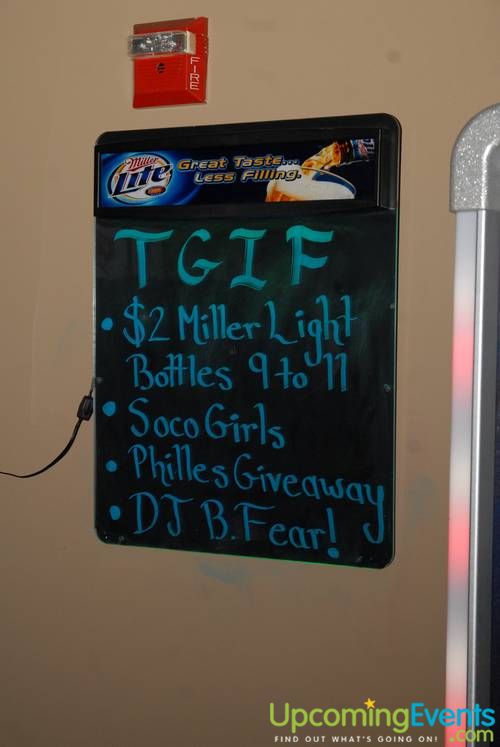 FIRE
Miller
Lite
Great Taste...
Less Filling.
TGIF
• $2 Miller Light
Bottles 9 to 11
• Soco Girls
• Philles Giveaway
• DJ B. Fear!
UpcomingEvents
.com
FIND OUT WHAT'S GOING ON!